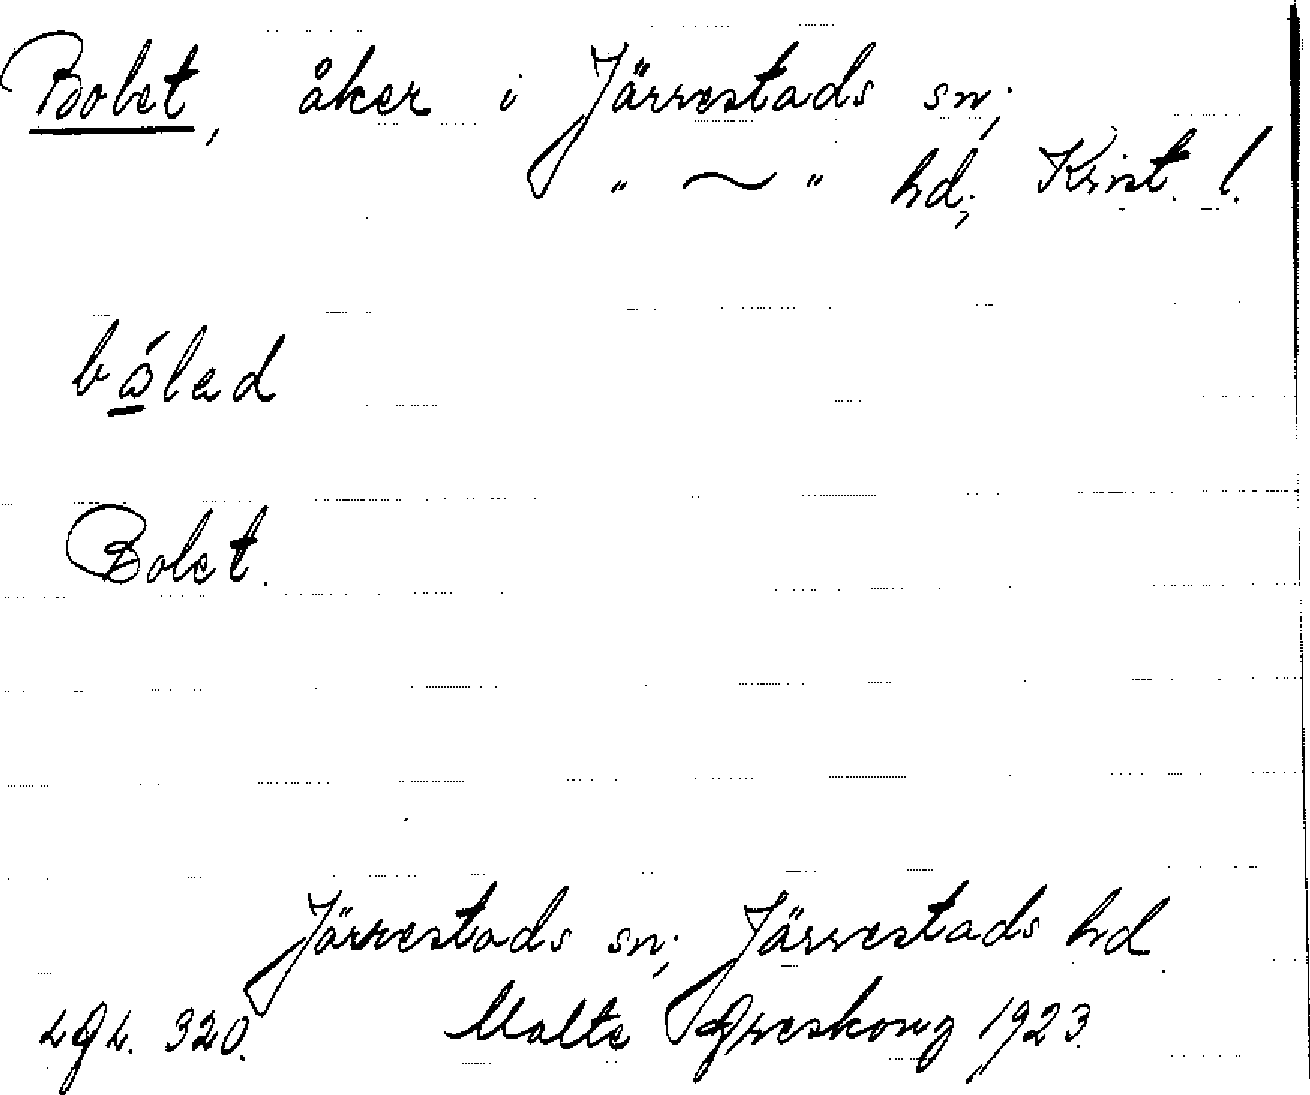 Bolet, åker i Järrestads sn;
" ~ " hd; Krist. l.
bólad
Bolet.
Järrestads sn; Järrestads hd
LgL. 320. Malte 1923.